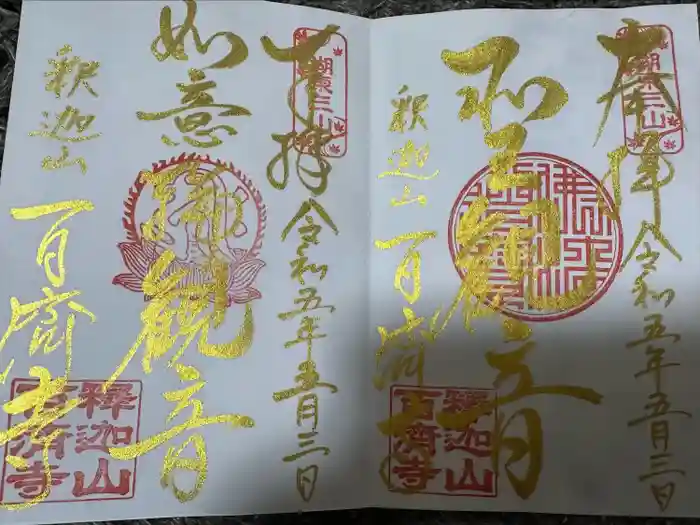 奉拝
湖東三山
令和五年五月三日
聖観音
釈迦山
百済寺
釋迦山
百済寺
奉拝
湖東三山
令和五年五月三日
如意輪観音
釈迦山
百済寺
釋迦山
百済寺